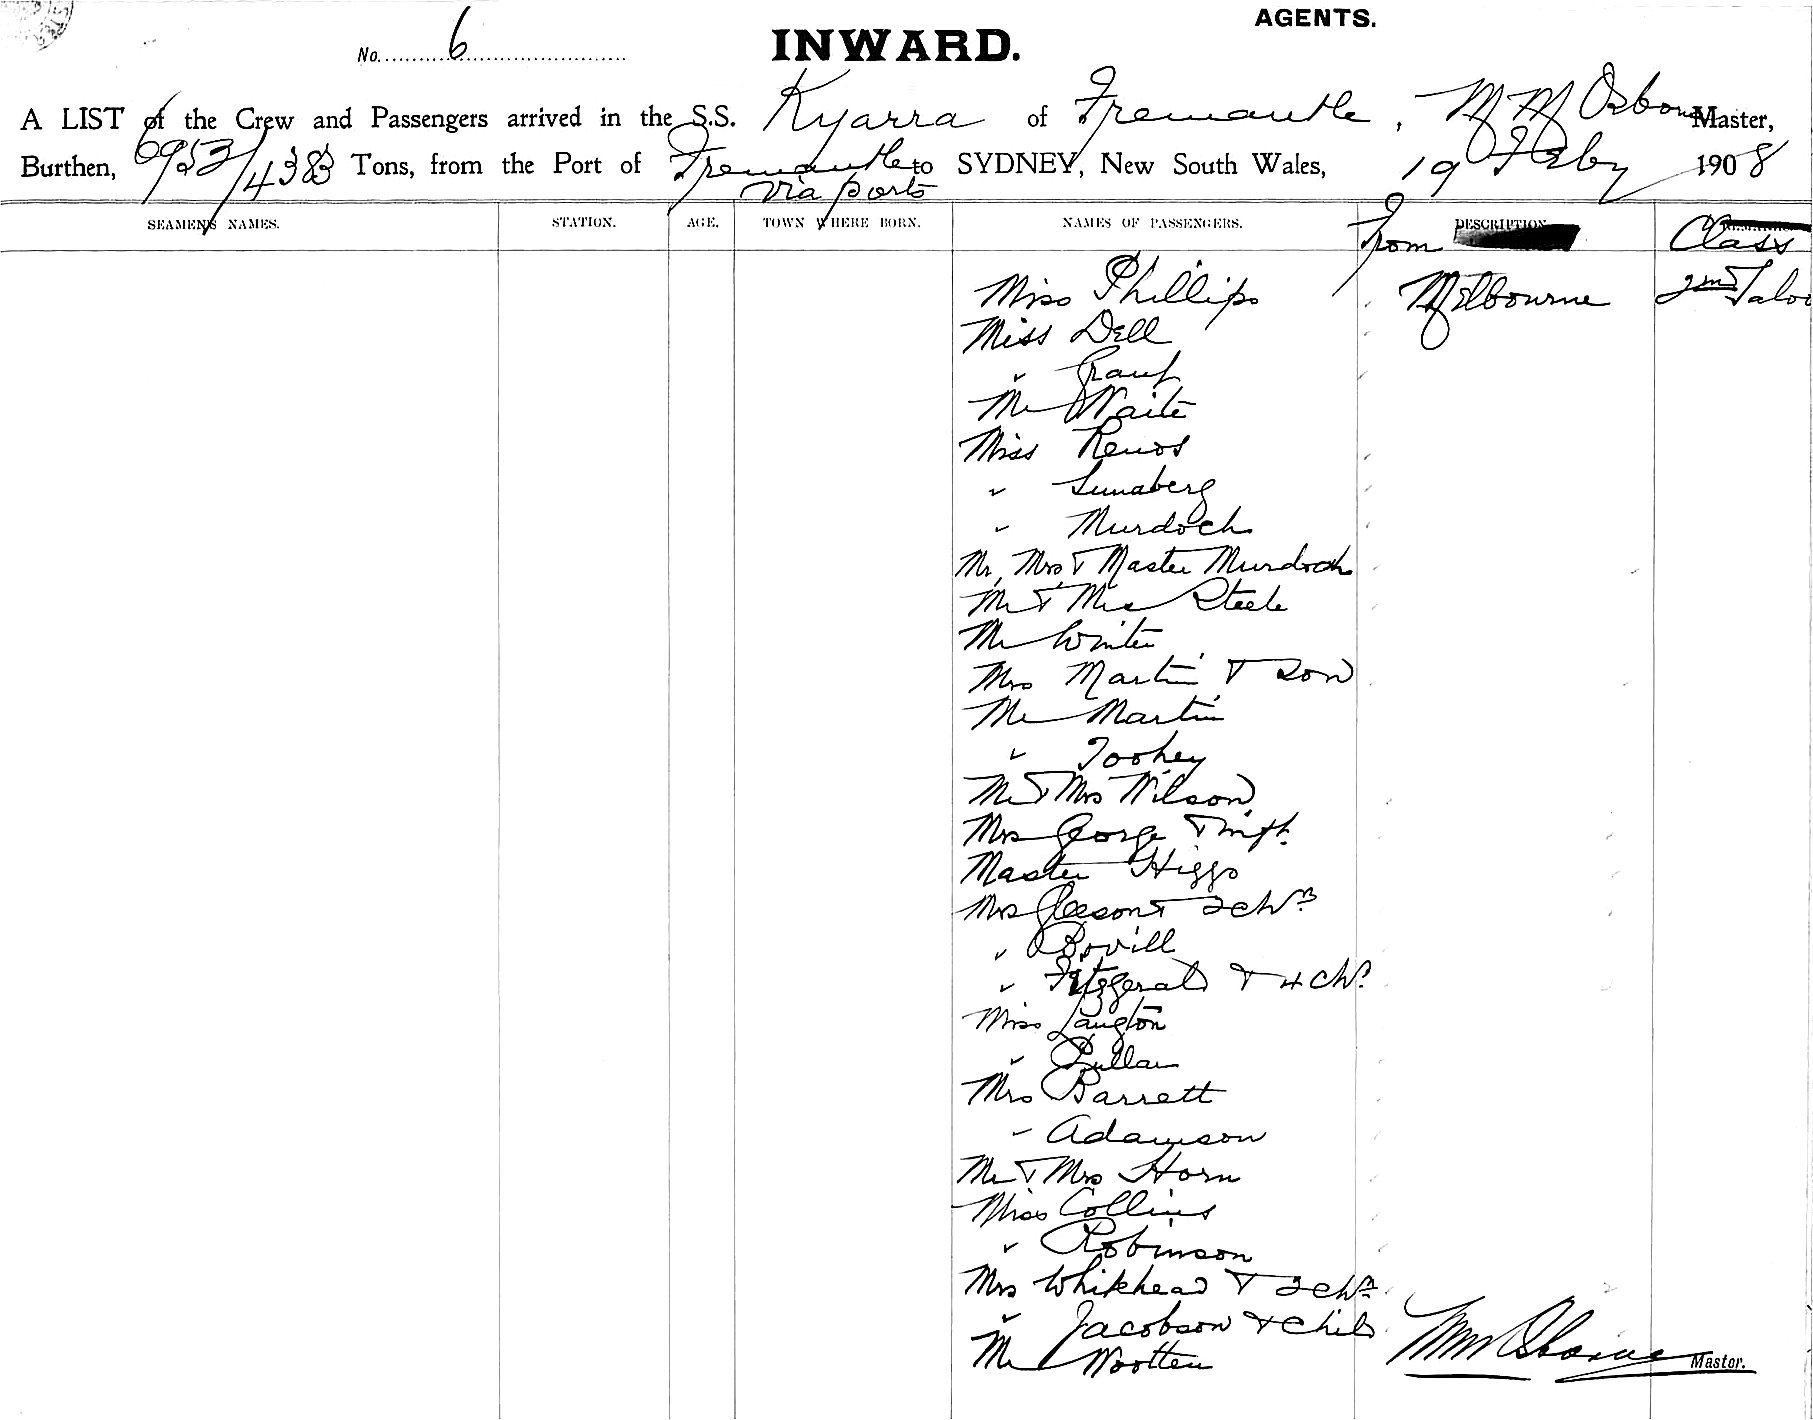 AGENTS.
No. 6 INWARD.
A LIST of the Crew and Passengers arrived in the S.S. Kyarra of Fremantle, Osborne Master,
Burthen, 6953/4383 Tons, from the Port of Fremantle to SYDNEY, New South Wales, 19 Feby 1908
via ports
SEAMEN'S NAMES. STATION. AGE. TOWN WHERE BORN. NAMES OF PASSENGERS. From DESCRIPTION Class
Miss Phillips Melbourne 2nd Saloo
Miss Dell
"
Mr Waite
Miss
"
" Murdoch
Mr, Mrs & Master Murdoch
Mr & Mrs Steele
Mr Winter
Mrs Martin & Son
Mr Martin
" Toohey
Mr & Mrs Wilson
Mrs George & inft.
Master Higgs
Mrs Gleeson & 2 chn
" Bovill
" Fitzgerald & 4 chn
Miss Langton
" Pullar
Mrs Barrett
" Adamson
Mr & Mrs Horn
Miss Collins
" Robinson
Mrs Whitehead & 2 chn
" Jacobson & Child
Mr Wootten
Osborne Master.